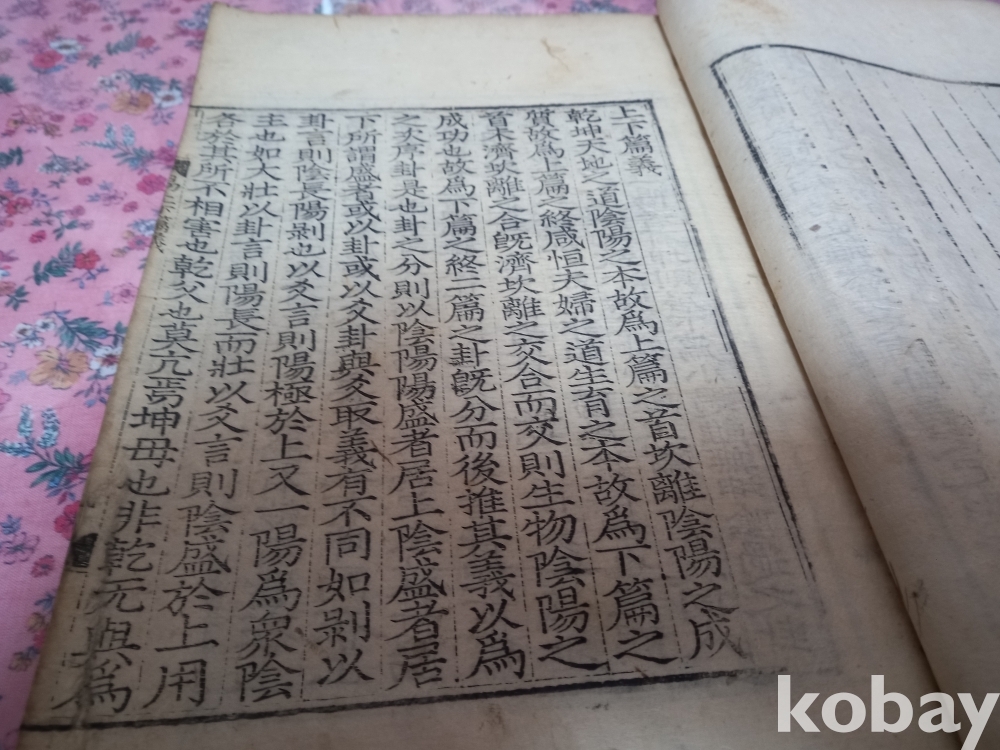 上下篇義
乾坤天地之道陰陽之本故爲上篇之首坎離陰陽之成
質故爲上篇之終咸恒夫婦之道生育之本故爲下篇之
首未濟坎離之合旣濟坎離之交合而交則生物陰陽之
成功也故爲下篇之終二篇之卦旣分而後推其義以爲
之次序卦是也卦之分則以陰陽陽盛者居上陰盛者居
下所謂盛者或以卦或以爻卦與爻取義有不同如剝以
卦言則陰長陽剝也以爻言則陽極於上又一陽爲衆陰
主也如大壯以卦言則陽長而壯以爻言則陰盛於上用
各於其所不相害也乾父也莫亢焉坤母也非乾元與爲
kobay